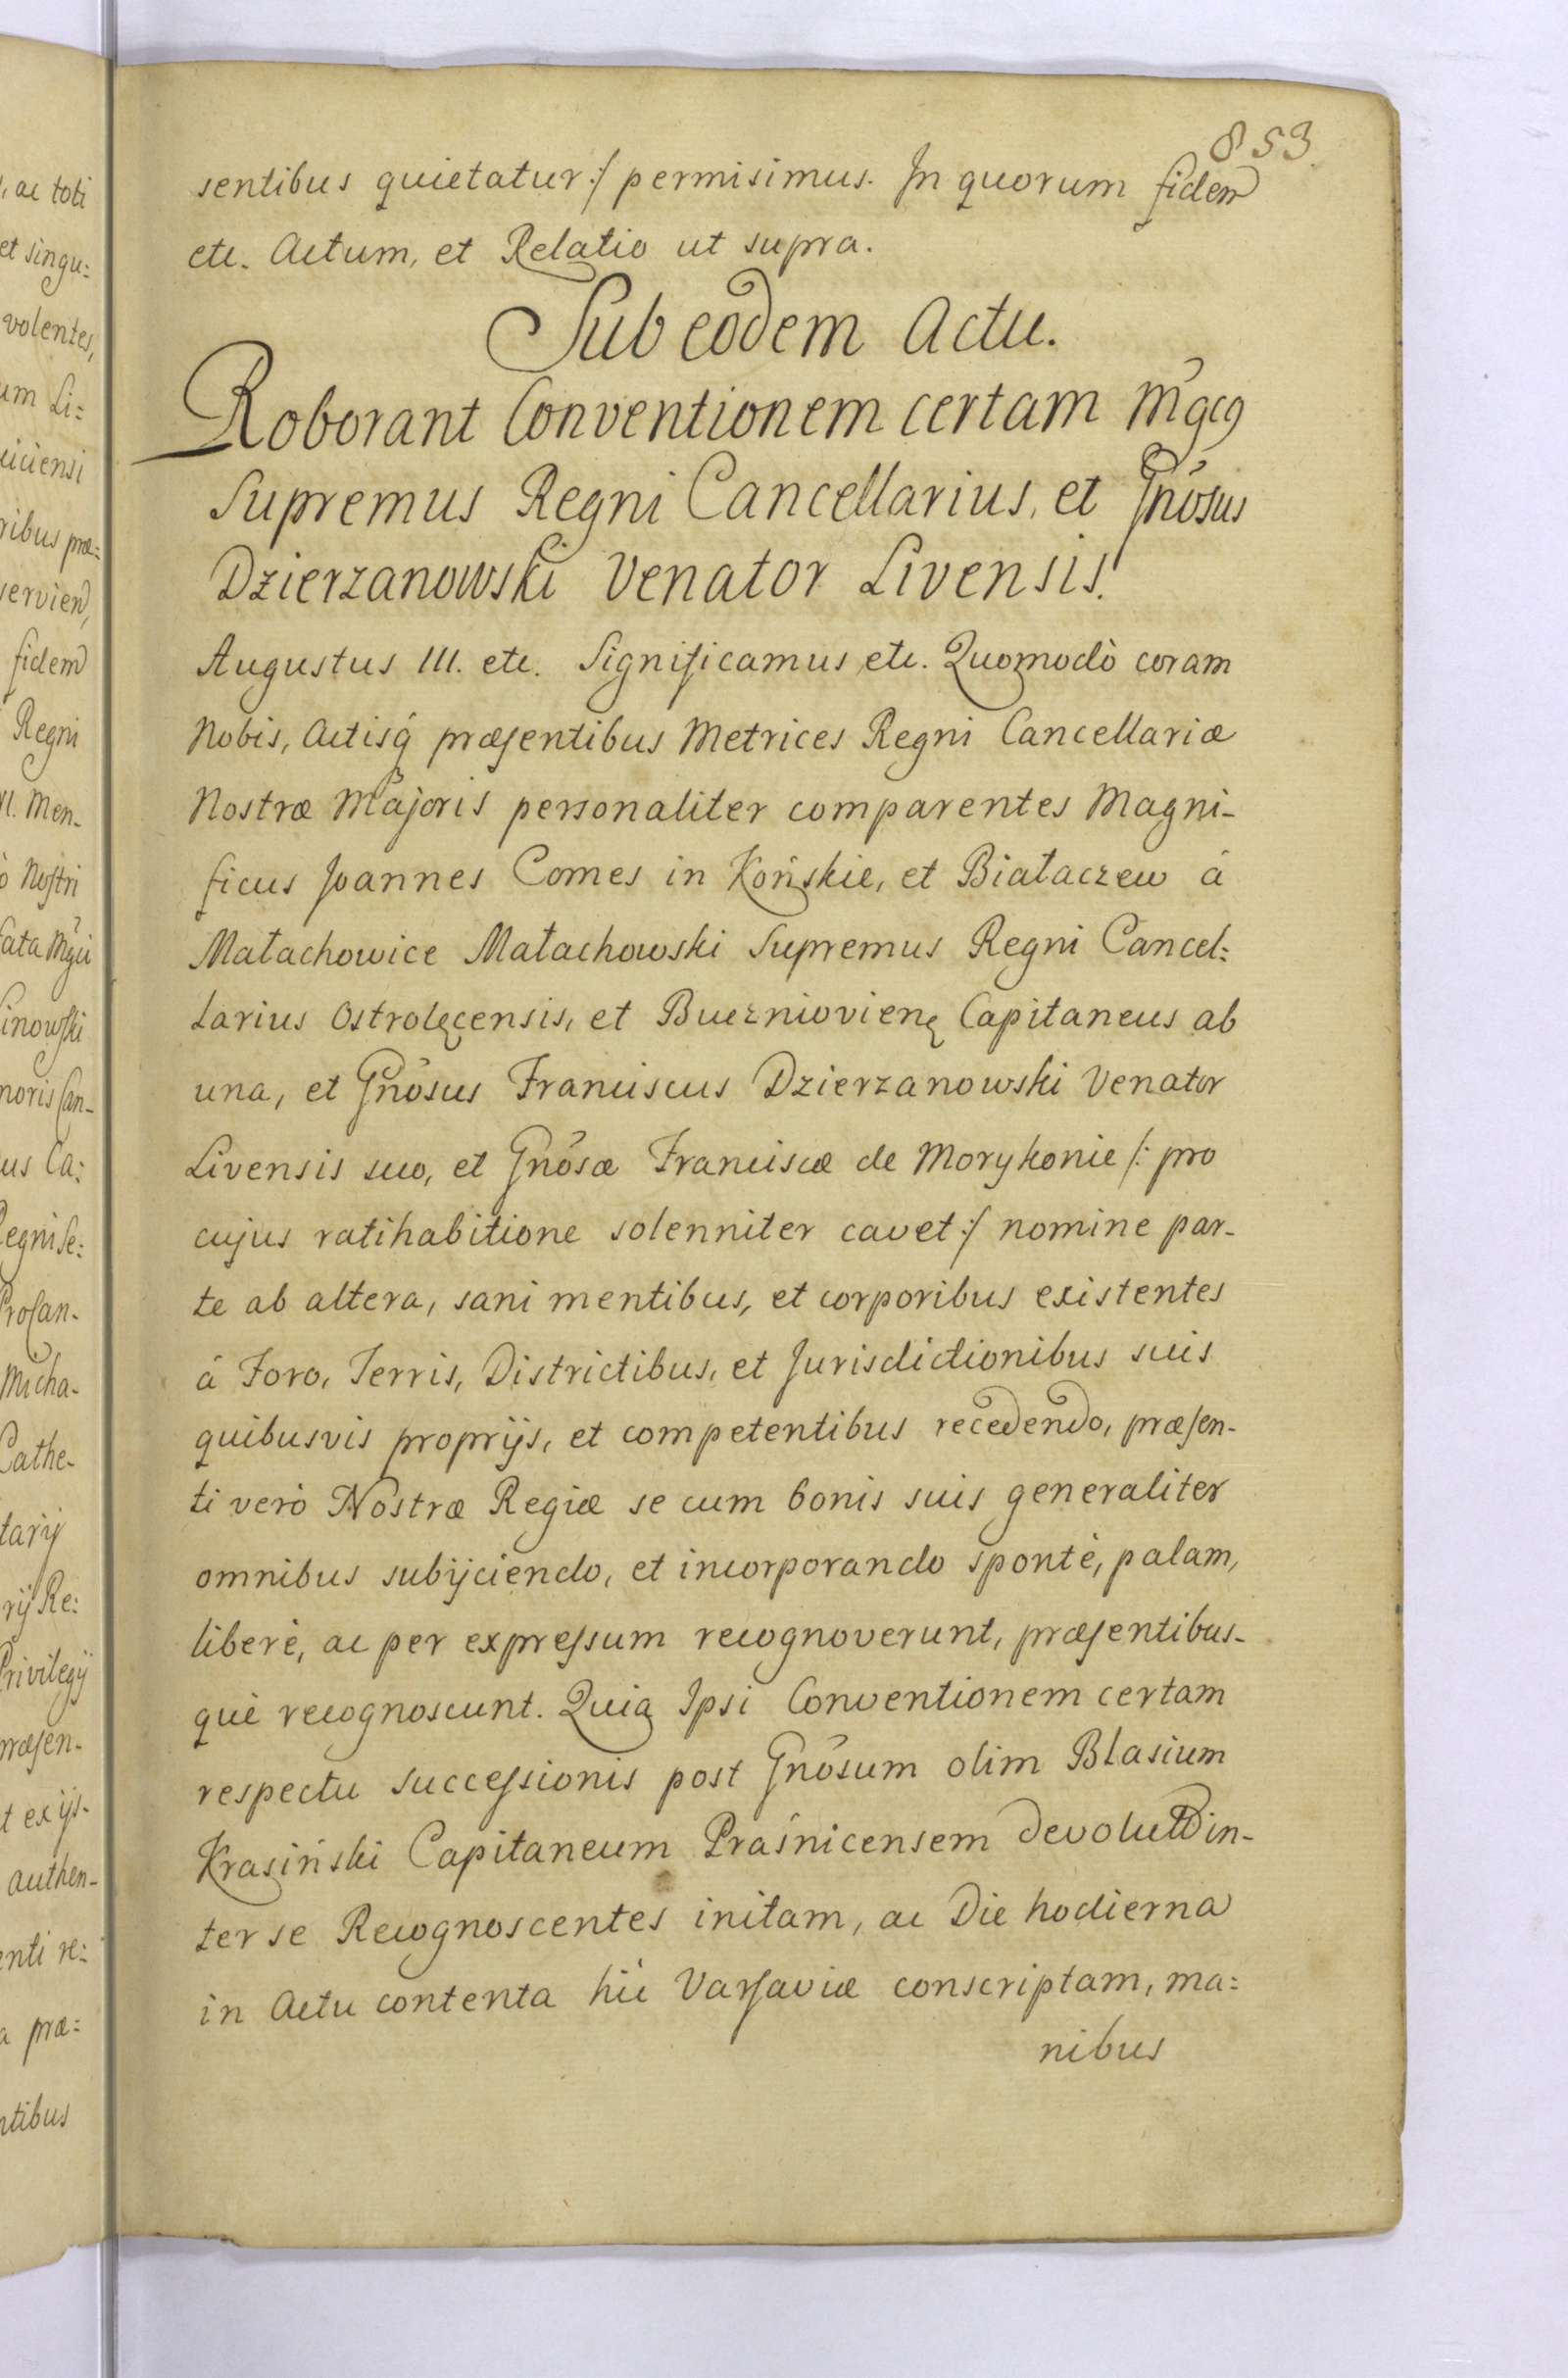 853
sentibus quietatur :/ permisimus. In quorum fidem
etc. Actum, et Relatio ut supra.
Sub eodem Actu.
Roborant Conventionem certam Mgcus
Supremus Regni Cancellarius, et Gnõsus
Dzierzanowski Venator Livensis.
Augustus III. etc. Significamus etc. Quomodò coram
Nobis, Actisq́ præsentibus Metrices Regni Cancellariæ
Nostræ Majoris personaliter comparentes Magni-
ficus Joannes Comes in Końskie, et Białaczew à
Małachowice Małachowski Supremus Regni Cancel=
larius Ostrolęcensis, et Buczniovien̨ Capitaneus ab
una, et Gnõsus Franciscus Dzierzanowski Venator
Livensis suo, et Gnõsæ Franciscæ de Morykonie /: pro
cujus ratihabitione solenniter cavet :/ nomine par-
te ab altera, sani mentibus, et corporibus existentes
à Foro, Terris, Districtibus, et Jurisdictionibus suis
quibusvis proprijs, et competentibus recedendo, præsen-
ti verò Nostræ Regiæ se cum bonis suis generaliter
omnibus subijciendo, et incorporando spontè, palam,
liberè, ac per expressum recognoverunt, præsentibus-
què recognoscunt. Quia Ipsi Conventionem certam
respectu successionis post Gnõsum olim Blasium
Krasiński Capitaneum Praśnicensem devolut in-
ter se Recognoscentes initam, ac Die hodierna
in Actu contenta hìc Varsaviæ conscriptam, ma=
nibus
, ac toti
et singu=
volentes,
um Li=
ciciensi
ribus præ=
fidem
Regni
Men-
Nostri
inowski
noris Can-
us Ca=
Regni Se=
ProCan-
Micha-
Cathe-
tarij
rij Re=
Privilegij
præsen-
t exijs-
authen-
enti re=
a præ=
ntibus